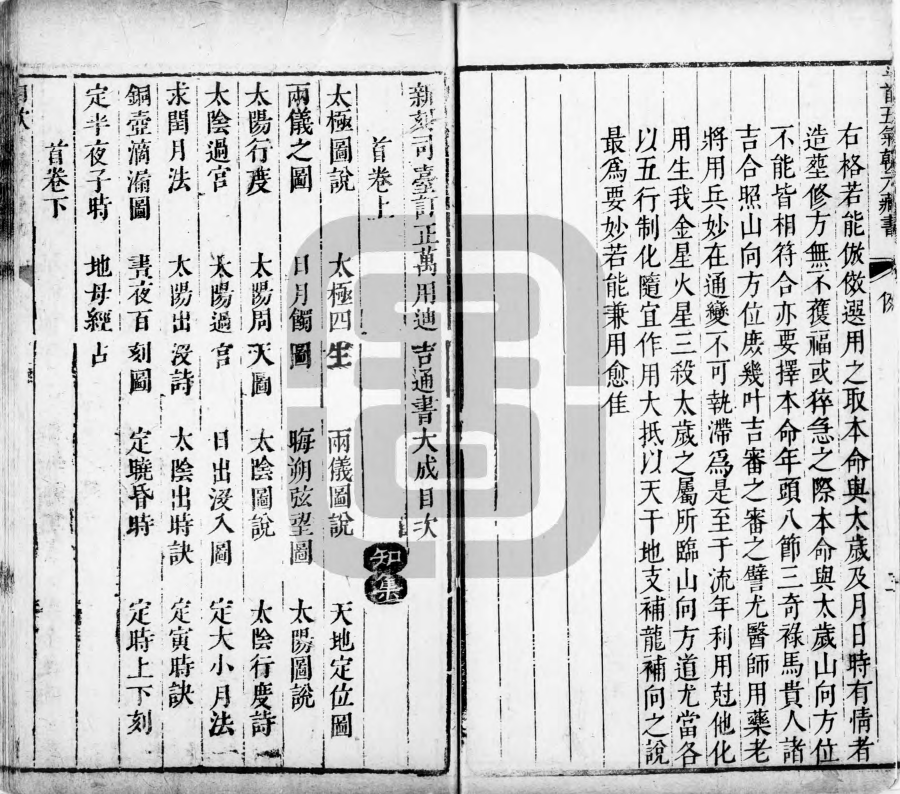 右格若能倣傚選用之取本命與太歲及月日時有情者
造塟修方無不獲福或猝急之際本命與太歲山向方位
不能皆相符合亦要擇本命年頭八節三奇祿馬貴人諸
吉合照山向方位庶幾叶吉審之審之譬尤醫師用藥老
將用兵妙在通變不可執滯爲是至于流年利用尅他化
用生我金星火星三殺太歲之屬所臨山向方道尤當各
以五行制化隨宜作用大抵以天干地支補龍補向之說
最爲要妙若能兼用愈佳
新刻司臺訂正萬用迪吉通書大成目次
首卷上 知集
太極圖說 太極四生 兩儀圖說 天地定位圖
兩儀之圖 日月觸圖 晦朔弦望圖 太陽圖說
太陽行度 太陽周天圖 太陰圖說 太陰行度詩
太陰過宮 太陽過宮 日出沒入圖 定大小月法
求閏月法 太陽出沒詩 太陰出時訣 定寅時訣
銅壺滴漏圖 晝夜百刻圖 定曉昏時 定時上下刻
定半夜子時 地母經占
首卷下